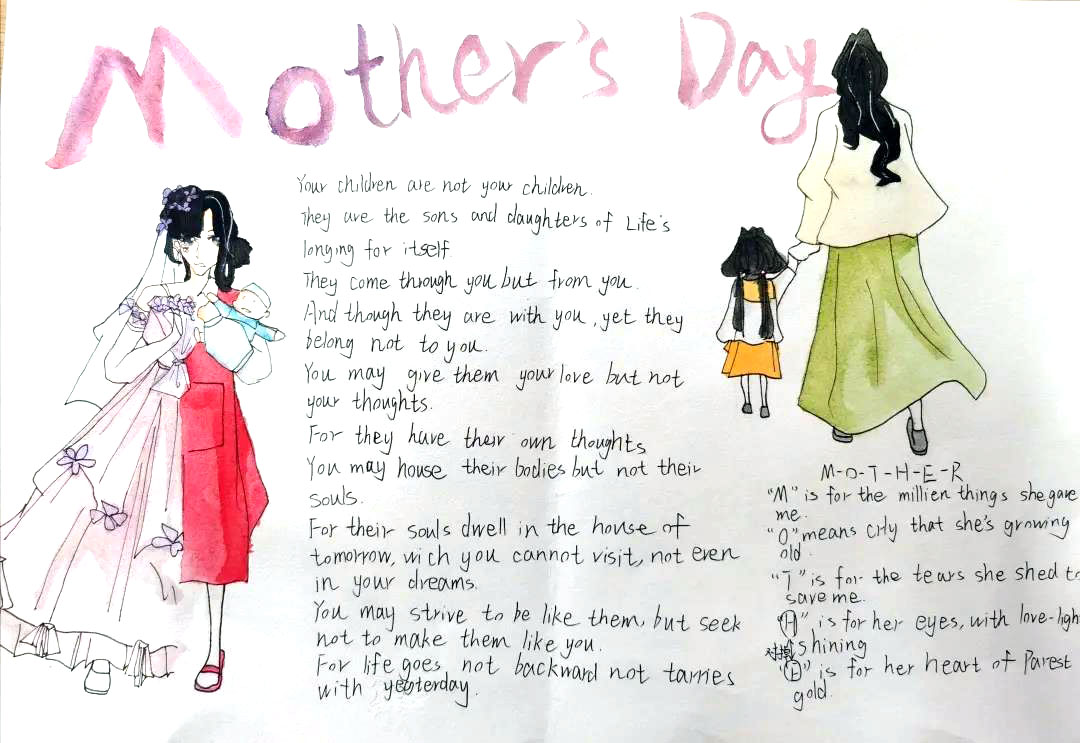 Mother's Day
Your children are not your children.
They are the sons and daughters of Life's
longing for itself.
They come through you but from you.
And though they are with you, yet they
belong not to you.
You may give them your love but not
your thoughts.
For they have their own thoughts
You may house their bodies but not their
souls.
For their souls dwell in the house of
tomorrow, wich you cannot visit, not even
in your dreams.
You may strive to be like them, but seek
not to make them like you.
For life goes not backward not tarries
with yesterday.
M-O-T-H-E-R
"M" is for the millien things she gave
me.
"O" means only that she's growing
old.
"T" is for the tears she shed to
save me.
"H" is for her eyes, with love-light
shining
对换
"E" is for her heart of Parest
gold.